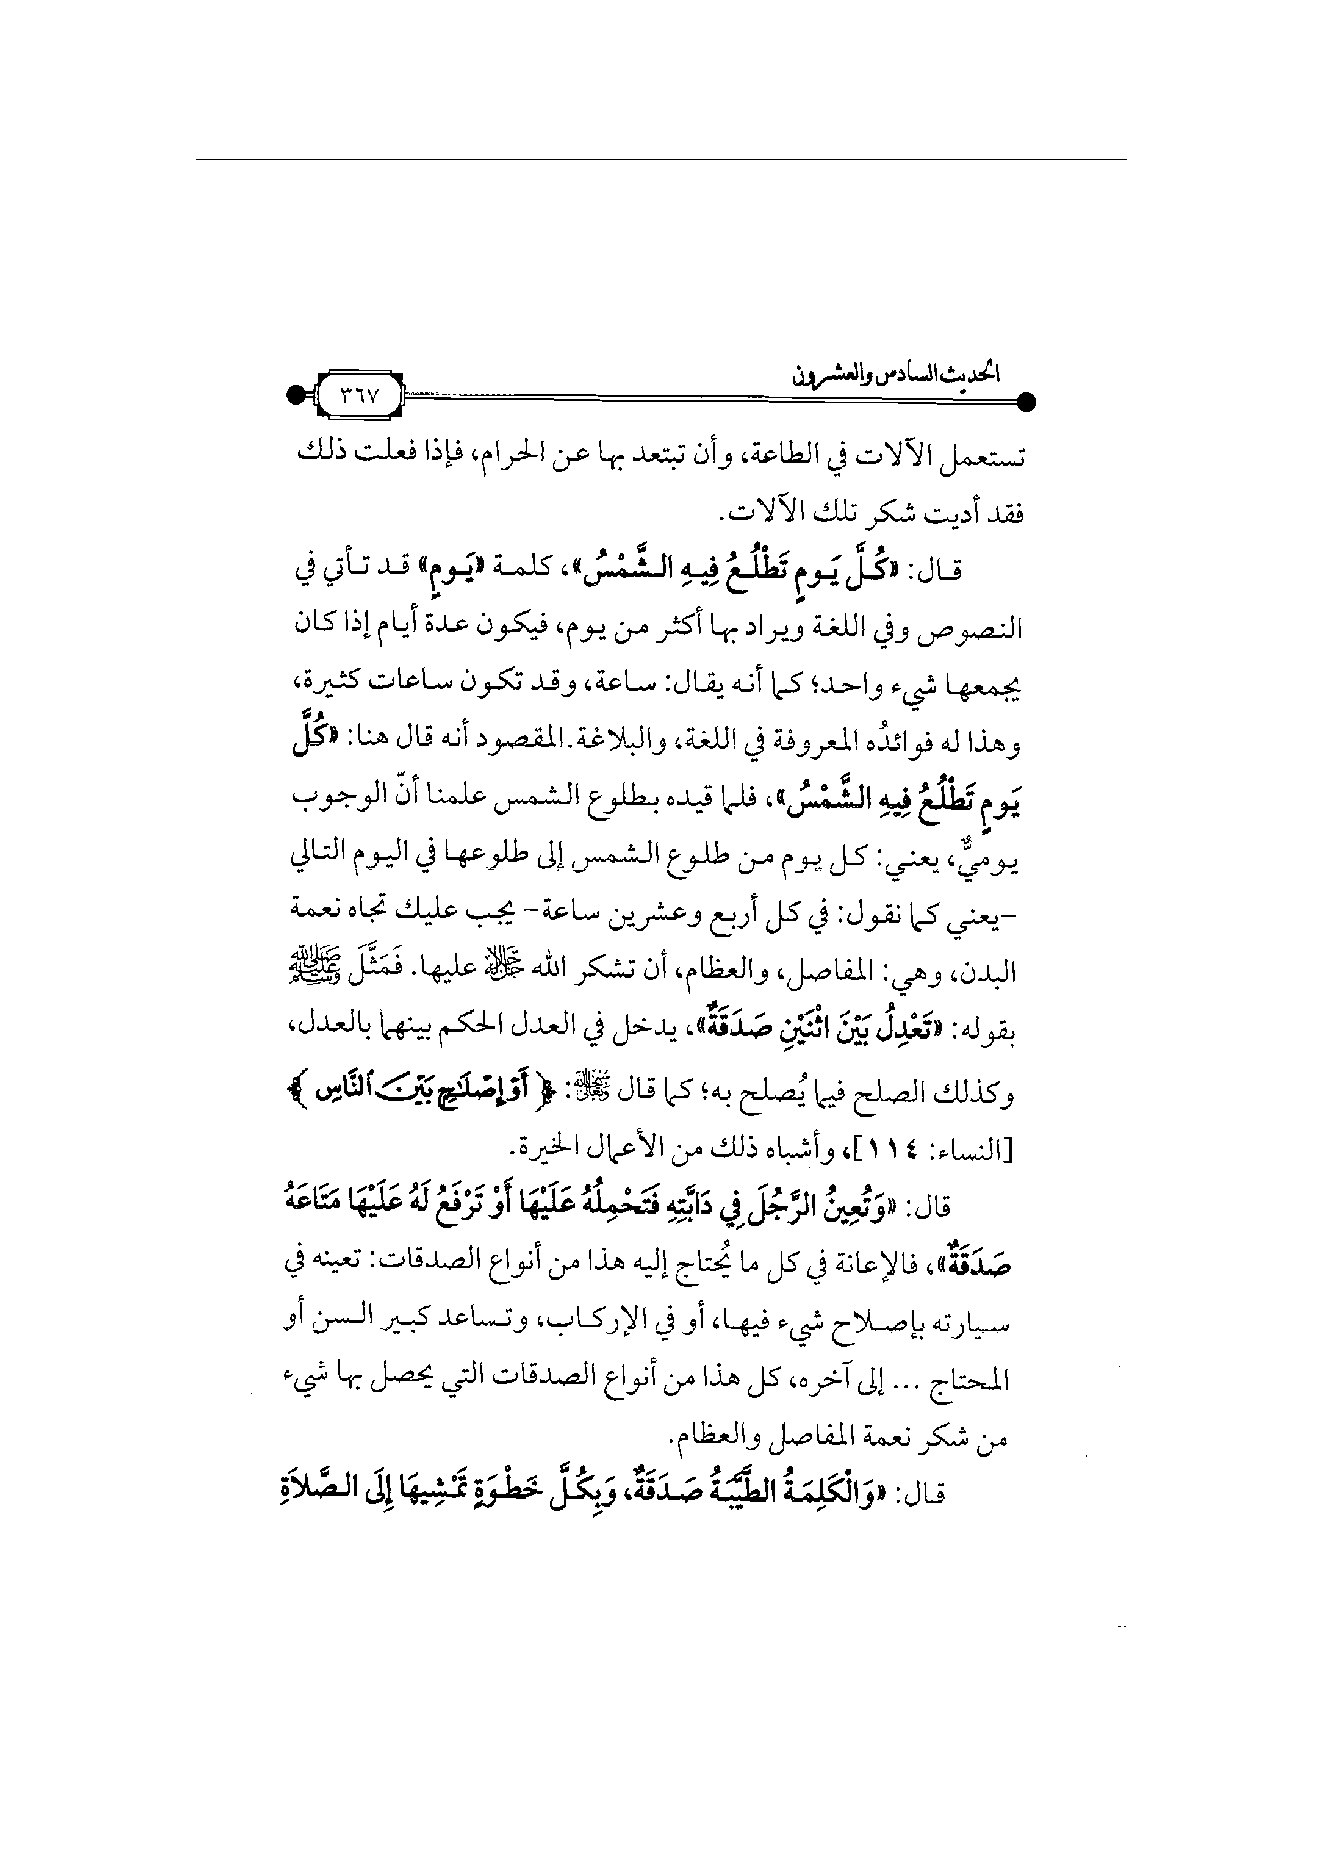 الحديث السادس والعشرون
٣٦٧
تستعمل الآلات في الطاعة، وأن تبتعد بها عن الحرام، فإذا فعلت ذلك
فقد أديت شكر تلك الآلات.
قال: «كُلَّ يَومٍ تَطْلُعُ فِيهِ الشَّمْسُ»، كلمة «يَومٍ» قد تأتي في
النصوص وفي اللغة ويراد بها أكثر من يوم، فيكون عدة أيام إذا كان
يجمعها شيء واحد؛ كما أنه يقال: ساعة، وقد تكون ساعات كثيرة،
وهذا له فوائدُه المعروفة في اللغة، والبلاغة.المقصود أنه قال هنا: «كُلَّ
يَومٍ تَطْلُعُ فِيهِ الشَّمْسُ»، فلما قيده بطلوع الشمس علمنا أنّ الوجوب
يوميٌّ، يعني: كل يوم من طلوع الشمس إلى طلوعها في اليوم التالي
-يعني كما نقول: في كل أربع وعشرين ساعة- يجب عليك تجاه نعمة
البدن، وهي: المفاصل، والعظام، أن تشكر الله ﷻ عليها. فَمَثَّلَ ﷺ
بقوله: «تَعْدِلُ بَيْنَ اثْنَيْنِ صَدَقَةٌ»، يدخل في العدل الحكم بينهما بالعدل،
وكذلك الصلح فيما يُصلح به؛ كما قال : ﴿أَوْ إِصْلَٰحٍ بَيْنَ ٱلنَّاسِ﴾
[النساء: ١١٤]، وأشباه ذلك من الأعمال الخيرة.
قال: «وَتُعِينُ الرَّجُلَ فِي دَابَّتِهِ فَتَحْمِلُهُ عَلَيْهَا أَوْ تَرْفَعُ لَهُ عَلَيْهَا مَتَاعَهُ
صَدَقَةٌ»، فالإعانة في كل ما يُحتاج إليه هذا من أنواع الصدقات: تعينه في
سيارته بإصلاح شيء فيها، أو في الإركاب، وتساعد كبير السن أو
المحتاج ... إلى آخره، كل هذا من أنواع الصدقات التي يحصل بها شيء
من شكر نعمة المفاصل والعظام.
قال: «وَالْكَلِمَةُ الطَّيِّبَةُ صَدَقَةٌ، وَبِكُلِّ خَطْوَةٍ تَمْشِيهَا إِلَى الصَّلاَةِ